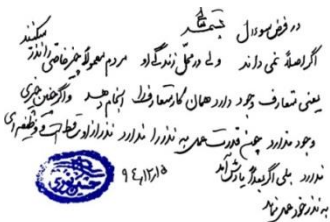 در فرض سوال
اگر اصلاً نمی داند ولی در محل زندگی او مردم معمولاً چیز خاصی نذر میکنند
یعنی متعارف وجود دارد همان کار متعارف را انجام دهد و اگر چنین چیزی
وجود ندارد چون قدرت عمل به نذر را ندارد نذر از او ساقط است و وظیفه ای
ندارد بلی اگر بعداً یادش آمد
به نذر خود عمل نماید
۹۴/۱۲/۱۵